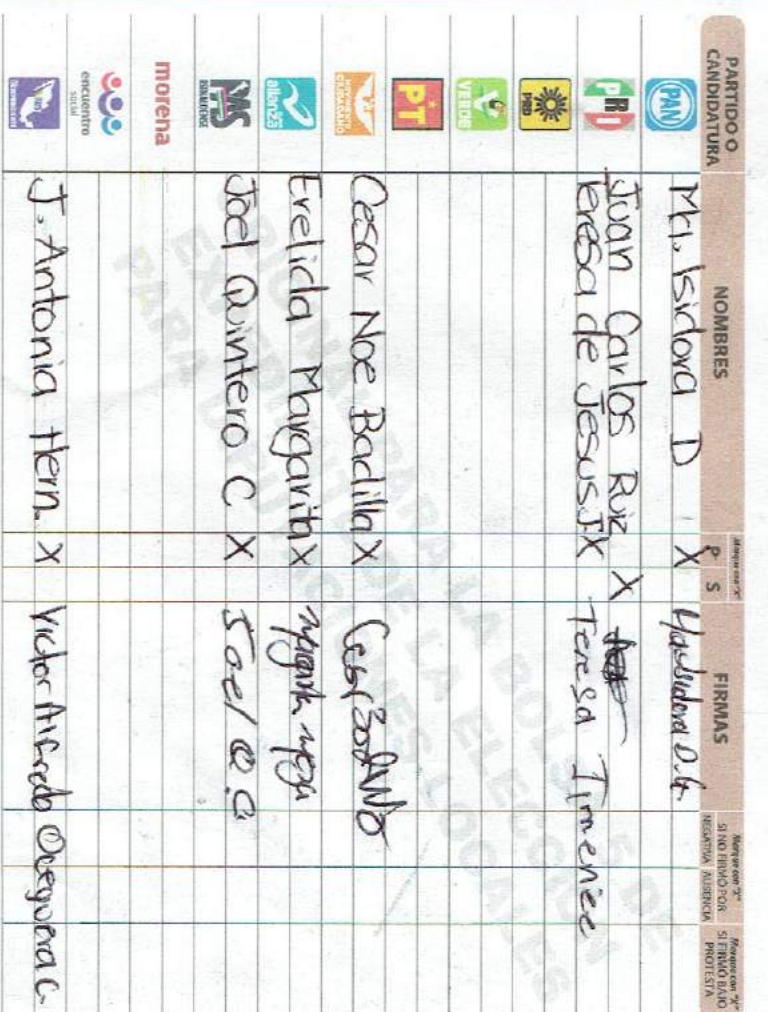 PARTIDO O CANDIDATURA NOMBRES Marque con "X" P S FIRMAS Marque con "X" SI NO FIRMÓ POR NEGATIVA AUSENCIA Marque con "X" SI FIRMÓ BAJO PROTESTA
PAN Ma. Isidora D X
PRI Juan Carlos Ruiz X
Teresa de Jesus J X Teresa Jimenice
PRD
VERDE
PT
MOVIMIENTO CIUDADANO Cesar Noe Badilla X
alianza Erelida Margarita X
PAS Joel Quintero C X Joel Q.C
morena
encuentro social
J. Antonia Hern. X Victor Alfredo Oceguera C.
ORIGINAL PARA LA BOLSA DE
EXPEDIENTE DE LA ELECCIÓN
PARA DIPUTACIONES LOCALES